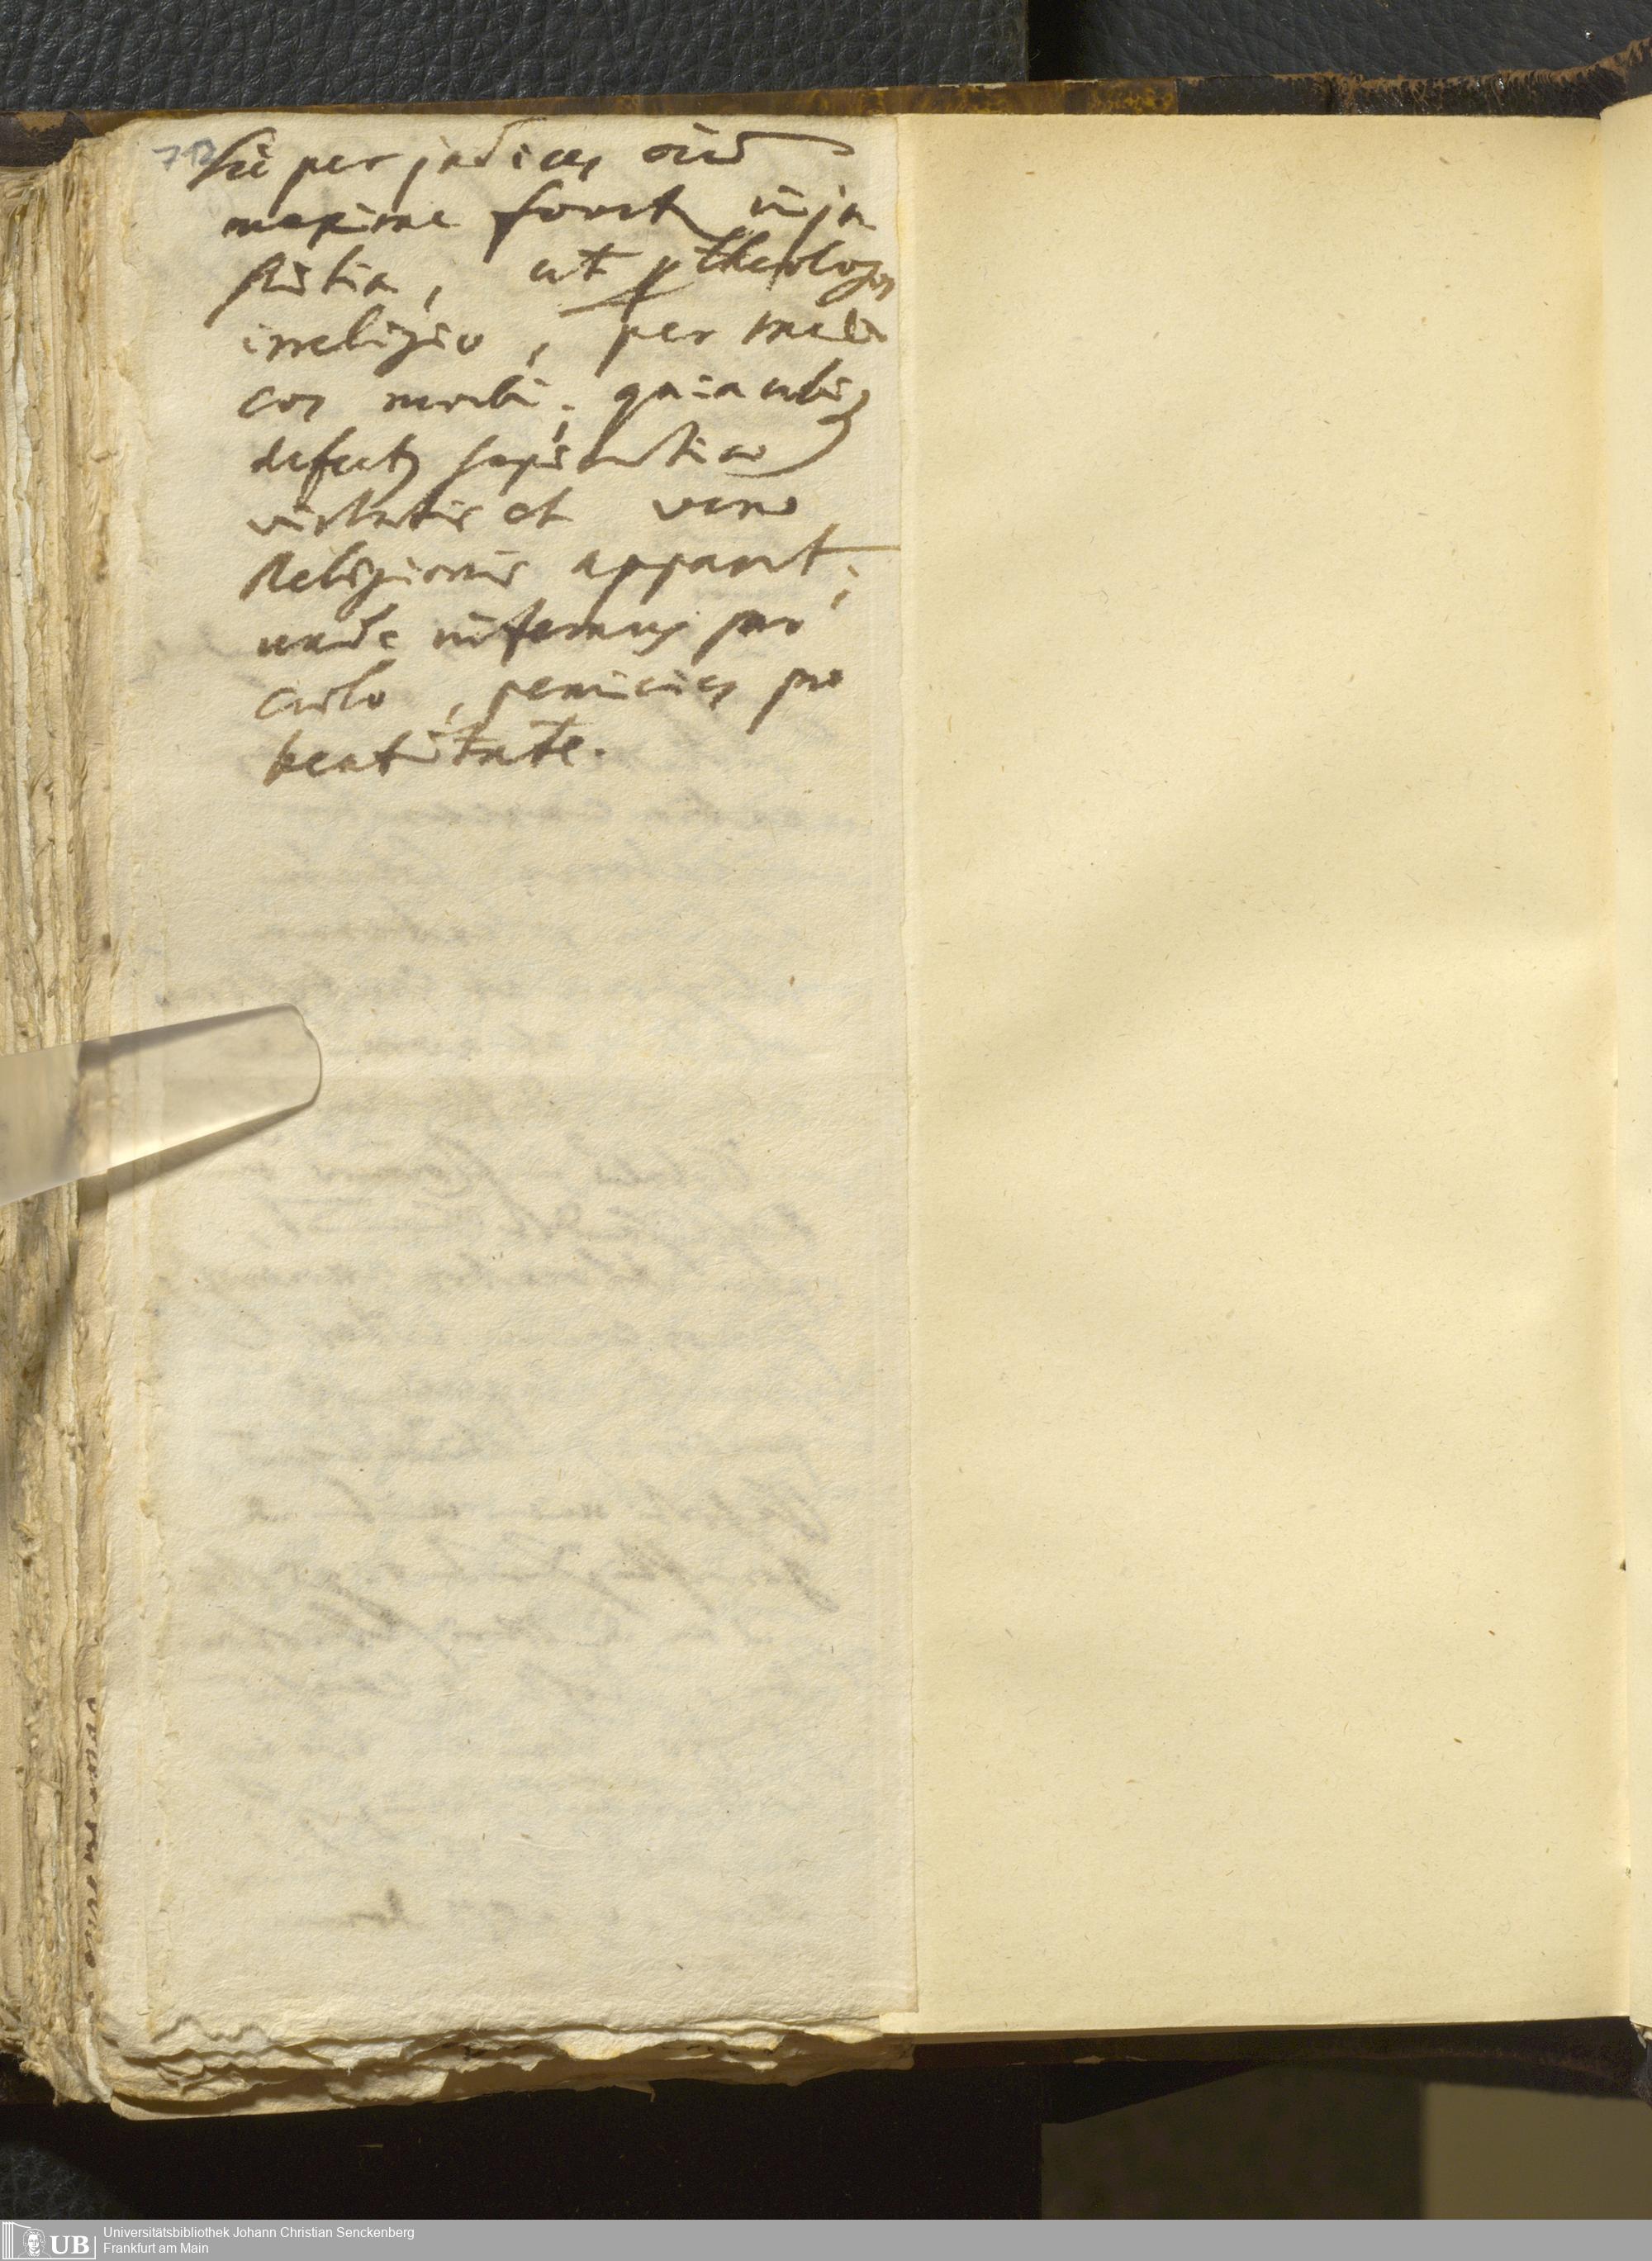 712
Sic per judices
maxime fovet inju
stitia, ut p theologos
irreligio, per medi
cos morbi; quia ubiq
defectq sapientiae
virtutis et verae
Religionis apparet;
unde infernus pro
coelo, pernicies pro
beatitate.
UB Universitätsbibliothek Johann Christian Senckenberg
Frankfurt am Main